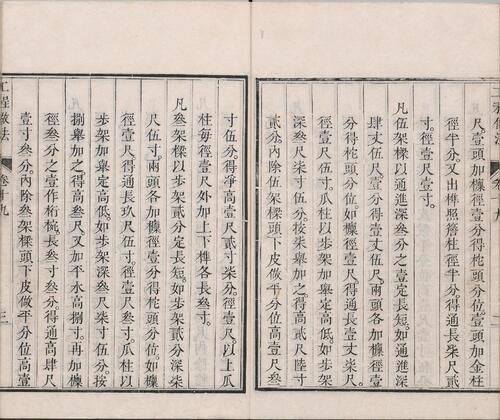 尺壹頭加檁徑壹分得柁頭分位壹頭加金柱
徑半分又出榫照簷柱徑半分得通長柒尺貳
寸。徑壹尺壹寸。
凡伍架樑以通進深叁分之壹定長短。如通進深
肆丈伍尺。壹分得壹丈伍尺。兩頭各加檁徑壹
分得柁頭分位。如檁徑壹尺。得通長壹丈柒尺。
徑壹尺伍寸。瓜柱以步架加舉定高低。如步架
深叁尺柒寸伍分。按柒舉加之得高貳尺陸寸
貳分。內除伍架樑頭下皮做平分位高壹尺叁
寸伍分。得淨高壹尺貳寸柒分。徑壹尺。以上瓜
柱每徑壹尺外加上下榫各長叁寸。
凡叁架樑以步架貳分定長短。如步架貳分深柒
尺伍寸。兩頭各加檁徑壹分得柁頭分位。如檁
徑壹尺得通長玖尺伍寸。徑壹尺叁寸。瓜柱以
步架加舉定高低。如步架深叁尺柒寸伍分。按
捌舉加之。得高叁尺又加平水高捌寸。再加檁
徑叁分之壹作桁椀。長叁寸叁分。得通高肆尺
壹寸叁分。內除叁架樑頭下皮做平分位高壹
工程做法 卷十九 三